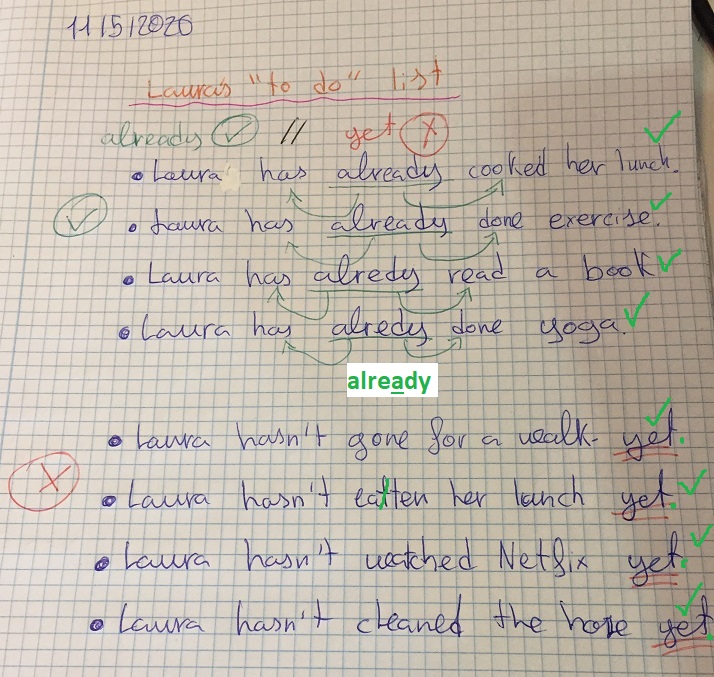 11/5/2020
Laura's "to do" list
already // yet X
• Laura has already cooked her lunch.
• Laura has already done exercise.
• Laura has alredy read a book
• Laura has alredy done yoga.
already
• Laura hasn't gone for a walk yet.
X
• Laura hasn't eatten her lanch yet.
• Laura hasn't watched Netflix yet.
• Laura hasn't cleaned the hose yet.